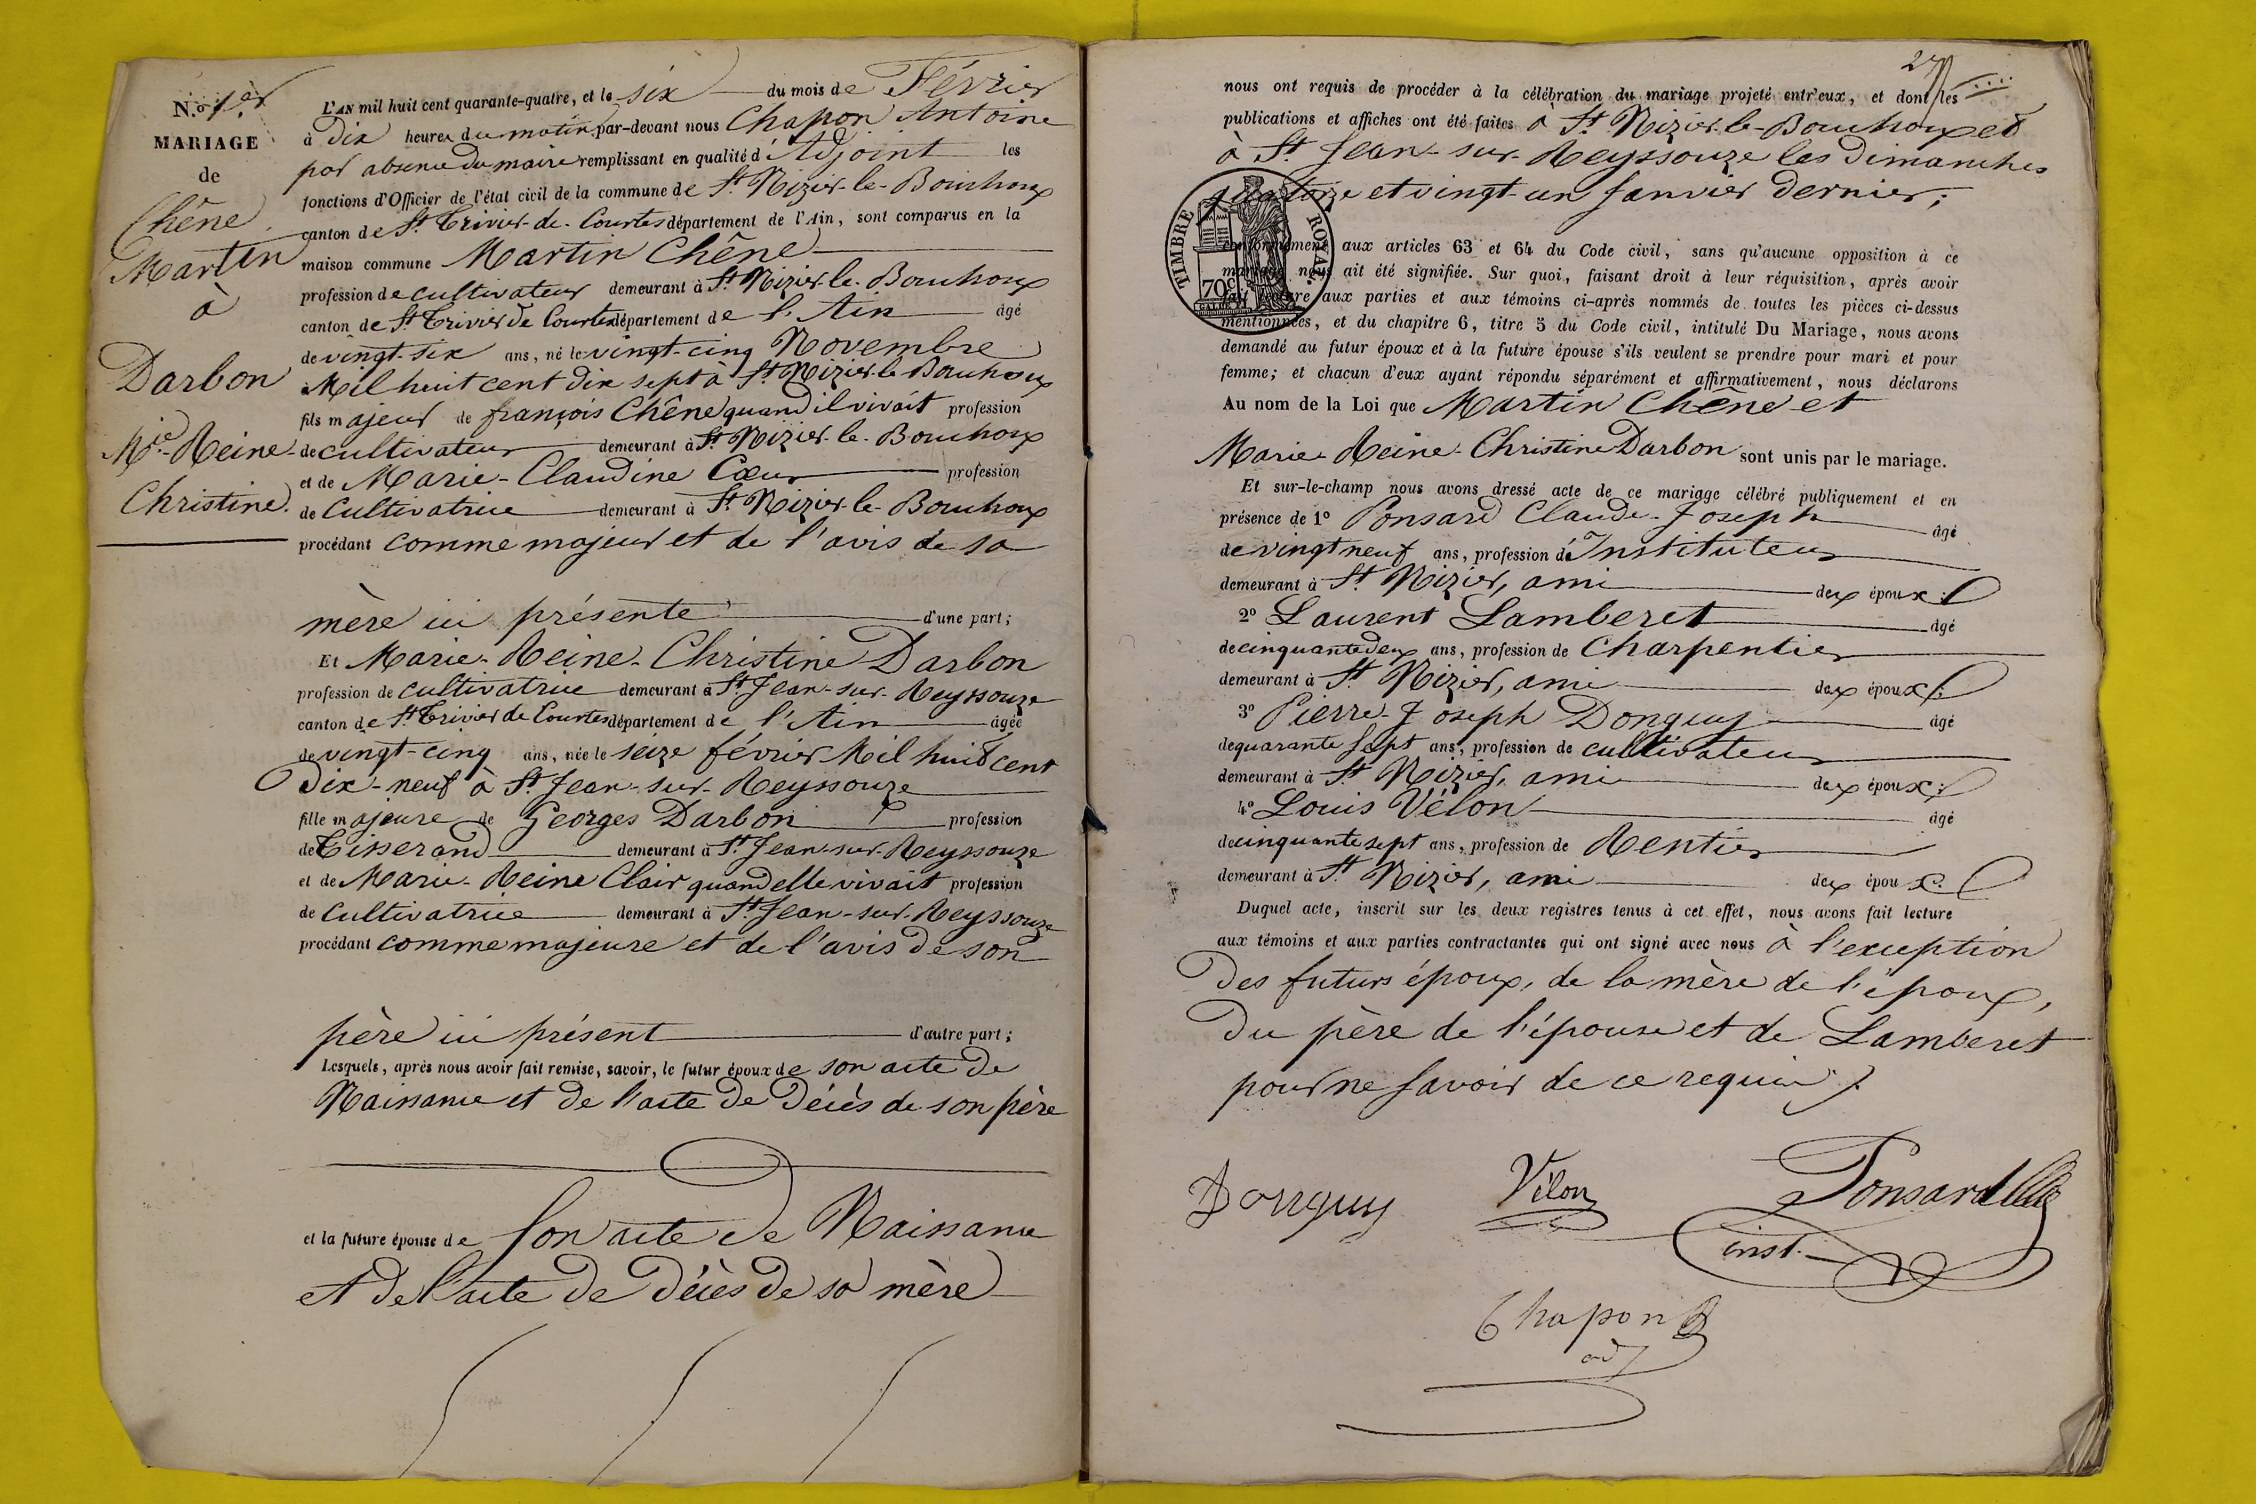 N.o 1.er
MARIAGE
de
Chêne
Martin
à
Darbon
M.ie-Reine-
Christine.
L'AN mil huit cent quarante-quatre, et le six du mois de Février
à dix heures du matin, par-devant nous Chapon Antoine
par absence du maire remplissant en qualité d'Adjoint les
fonctions d'Officier de l'état civil de la commune de St. Nizier-le-Bouchoux
canton de St. Trivier-de-Courtes département de l'Ain, sont comparus en la
maison commune Martin Chêne
profession de cultivateur demeurant à St. Nizier-le-Bouchoux
canton de St. Trivier de Courtes département de l'Ain âgé
de vingt-six ans, né le vingt-cinq Novembre
Mil huit cent dix sept à St. Nizier-le-Bouhoux
fils majeur de françois Chêne quand il vivait profession
de cultivateur demeurant à St. Nizier-le-Bouchoux
et de Marie-Claudine Cœur profession
de Cultivatrice demeurant à St. Nizier-le-Bouchoux
procédant comme majeur et de l'avis de sa
mère ici présente d'une part;
Et Marie-Reine-Christine Darbon
profession de cultivatrice demeurant à St. Jean-sur-Reyssouze
canton de St. Trivier de Courtes département de l'Ain âgée
de vingt-cinq ans, née le seize février Mil huit cent
Dix-neuf à St. Jean-sur-Reyssouze
fille majeure de Georges Darbon profession
de Tisserand demeurant à St. Jean-sur-Reyssouze
et de Marie-Reine Clair quand elle vivait profession
de Cultivatrice demeurant à St. Jean-sur-Reyssouze
procédant comme majeure et de l'avis de son
père ici présent d'autre part;
Lesquels, après nous avoir fait remise, savoir, le futur époux de son acte de
Naissance et de l'acte de Décès de son père
et la future épouse de son acte de Naissance
et de l'acte de Décès de sa mère
27
nous ont requis de procéder à la célébration du mariage projeté entr'eux, et dont les
publications et affiches ont été faites à St. Nizier-le-Bouchoux et
à St. Jean-sur-Reyssouze les dimanches
quatorze et vingt-un Janvier dernier;
TIMBRE ROYAL.
70c
conformément aux articles 63 et 64 du Code civil, sans qu'aucune opposition à ce
mariage nous ait été signifiée. Sur quoi, faisant droit à leur réquisition, après avoir
fait lecture aux parties et aux témoins ci-après nommés de toutes les pièces ci-dessus
mentionnées, et du chapitre 6, titre 5 du Code civil, intitulé Du Mariage, nous avons
demandé au futur époux et à la future épouse s'ils veulent se prendre pour mari et pour
femme; et chacun d'eux ayant répondu séparément et affirmativement, nous déclarons
Au nom de la Loi que Martin Chêne et
Marie-Reine-Christine Darbon sont unis par le mariage.
Et sur-le-champ nous avons dressé acte de ce mariage célébré publiquement et en
présence de 1o Ponsard Claude-Joseph âgé
de vingt neuf ans, profession d'Instituteur
demeurant à St. Nizier, ami des époux;
2o Laurent Lamberet âgé
de cinquante deux ans, profession de Charpentier
demeurant à St. Nizier, ami des époux;
3o Pierre-Joseph Donguy âgé
de quarante sept ans, profession de cultivateur
demeurant à St. Nizier, ami des époux;
4o Louis Vélon âgé
de cinquante sept ans, profession de Rentier
demeurant à St. Nizier, ami des époux.
Duquel acte, inscrit sur les deux registres tenus à cet effet, nous avons fait lecture
aux témoins et aux parties contractantes qui ont signé avec nous à l'exception
Des futurs époux, de la mère de l'époux,
Du père de l'épouse et de Lamberet
pour ne savoir de ce requis.
Donguy Vélon Ponsard
inst.
Chapon
adj